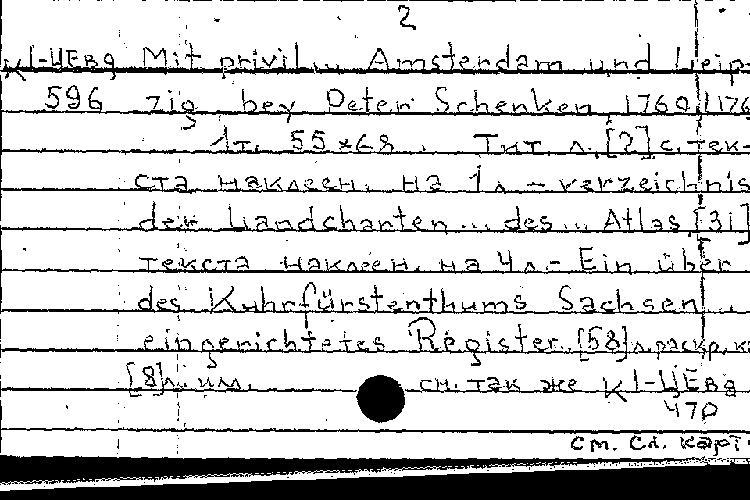 2
К I-ЦЕвg Mit privil... Amsterdam und Leip-
596 zig bey Peter Schenken 1760,
1т. 55×68. Тит. л. [2] с. тек-
ста наклеен. на 1л - verzeichnis
der Landcharten ... des ... Atlas, [31]
текста наклеен. на 4л. - Ein über
des Kuhrfürstenthums Sachsen ...
eingerichtetes Register. [58] л. раскр.
[8] л. илл. см. так же К I-ЦЕвg
470
см. сл. карт